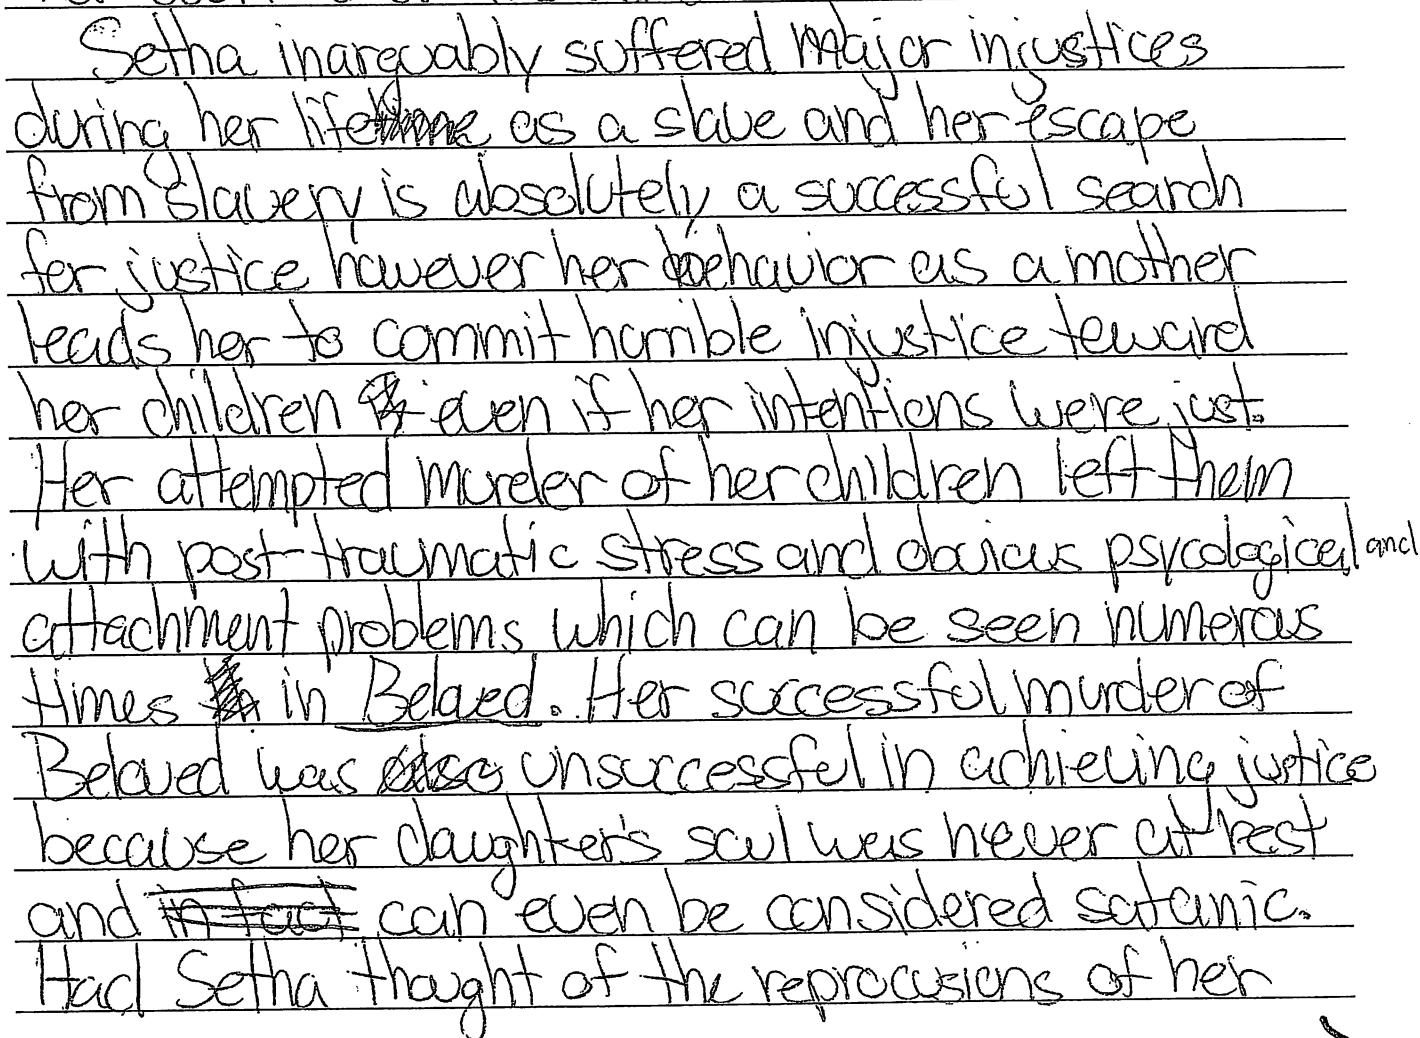 Setha inarguably suffered major injustices
during her life as a slave and her escape
from slavery is absolutely a successful search
for justice however her behavior as a mother
leads her to commit horrible injustice toward
her children even if her intentions were just.
Her attempted murder of her children left them
with post-traumatic stress and obvious psycological and
attachment problems which can be seen numerous
times in Beloved. Her successful murder of
Beloved was unsuccessful in achieving justice
because her daughter's soul was never at rest
and can even be considered satanic.
Had Setha thought of the reprocusions of her